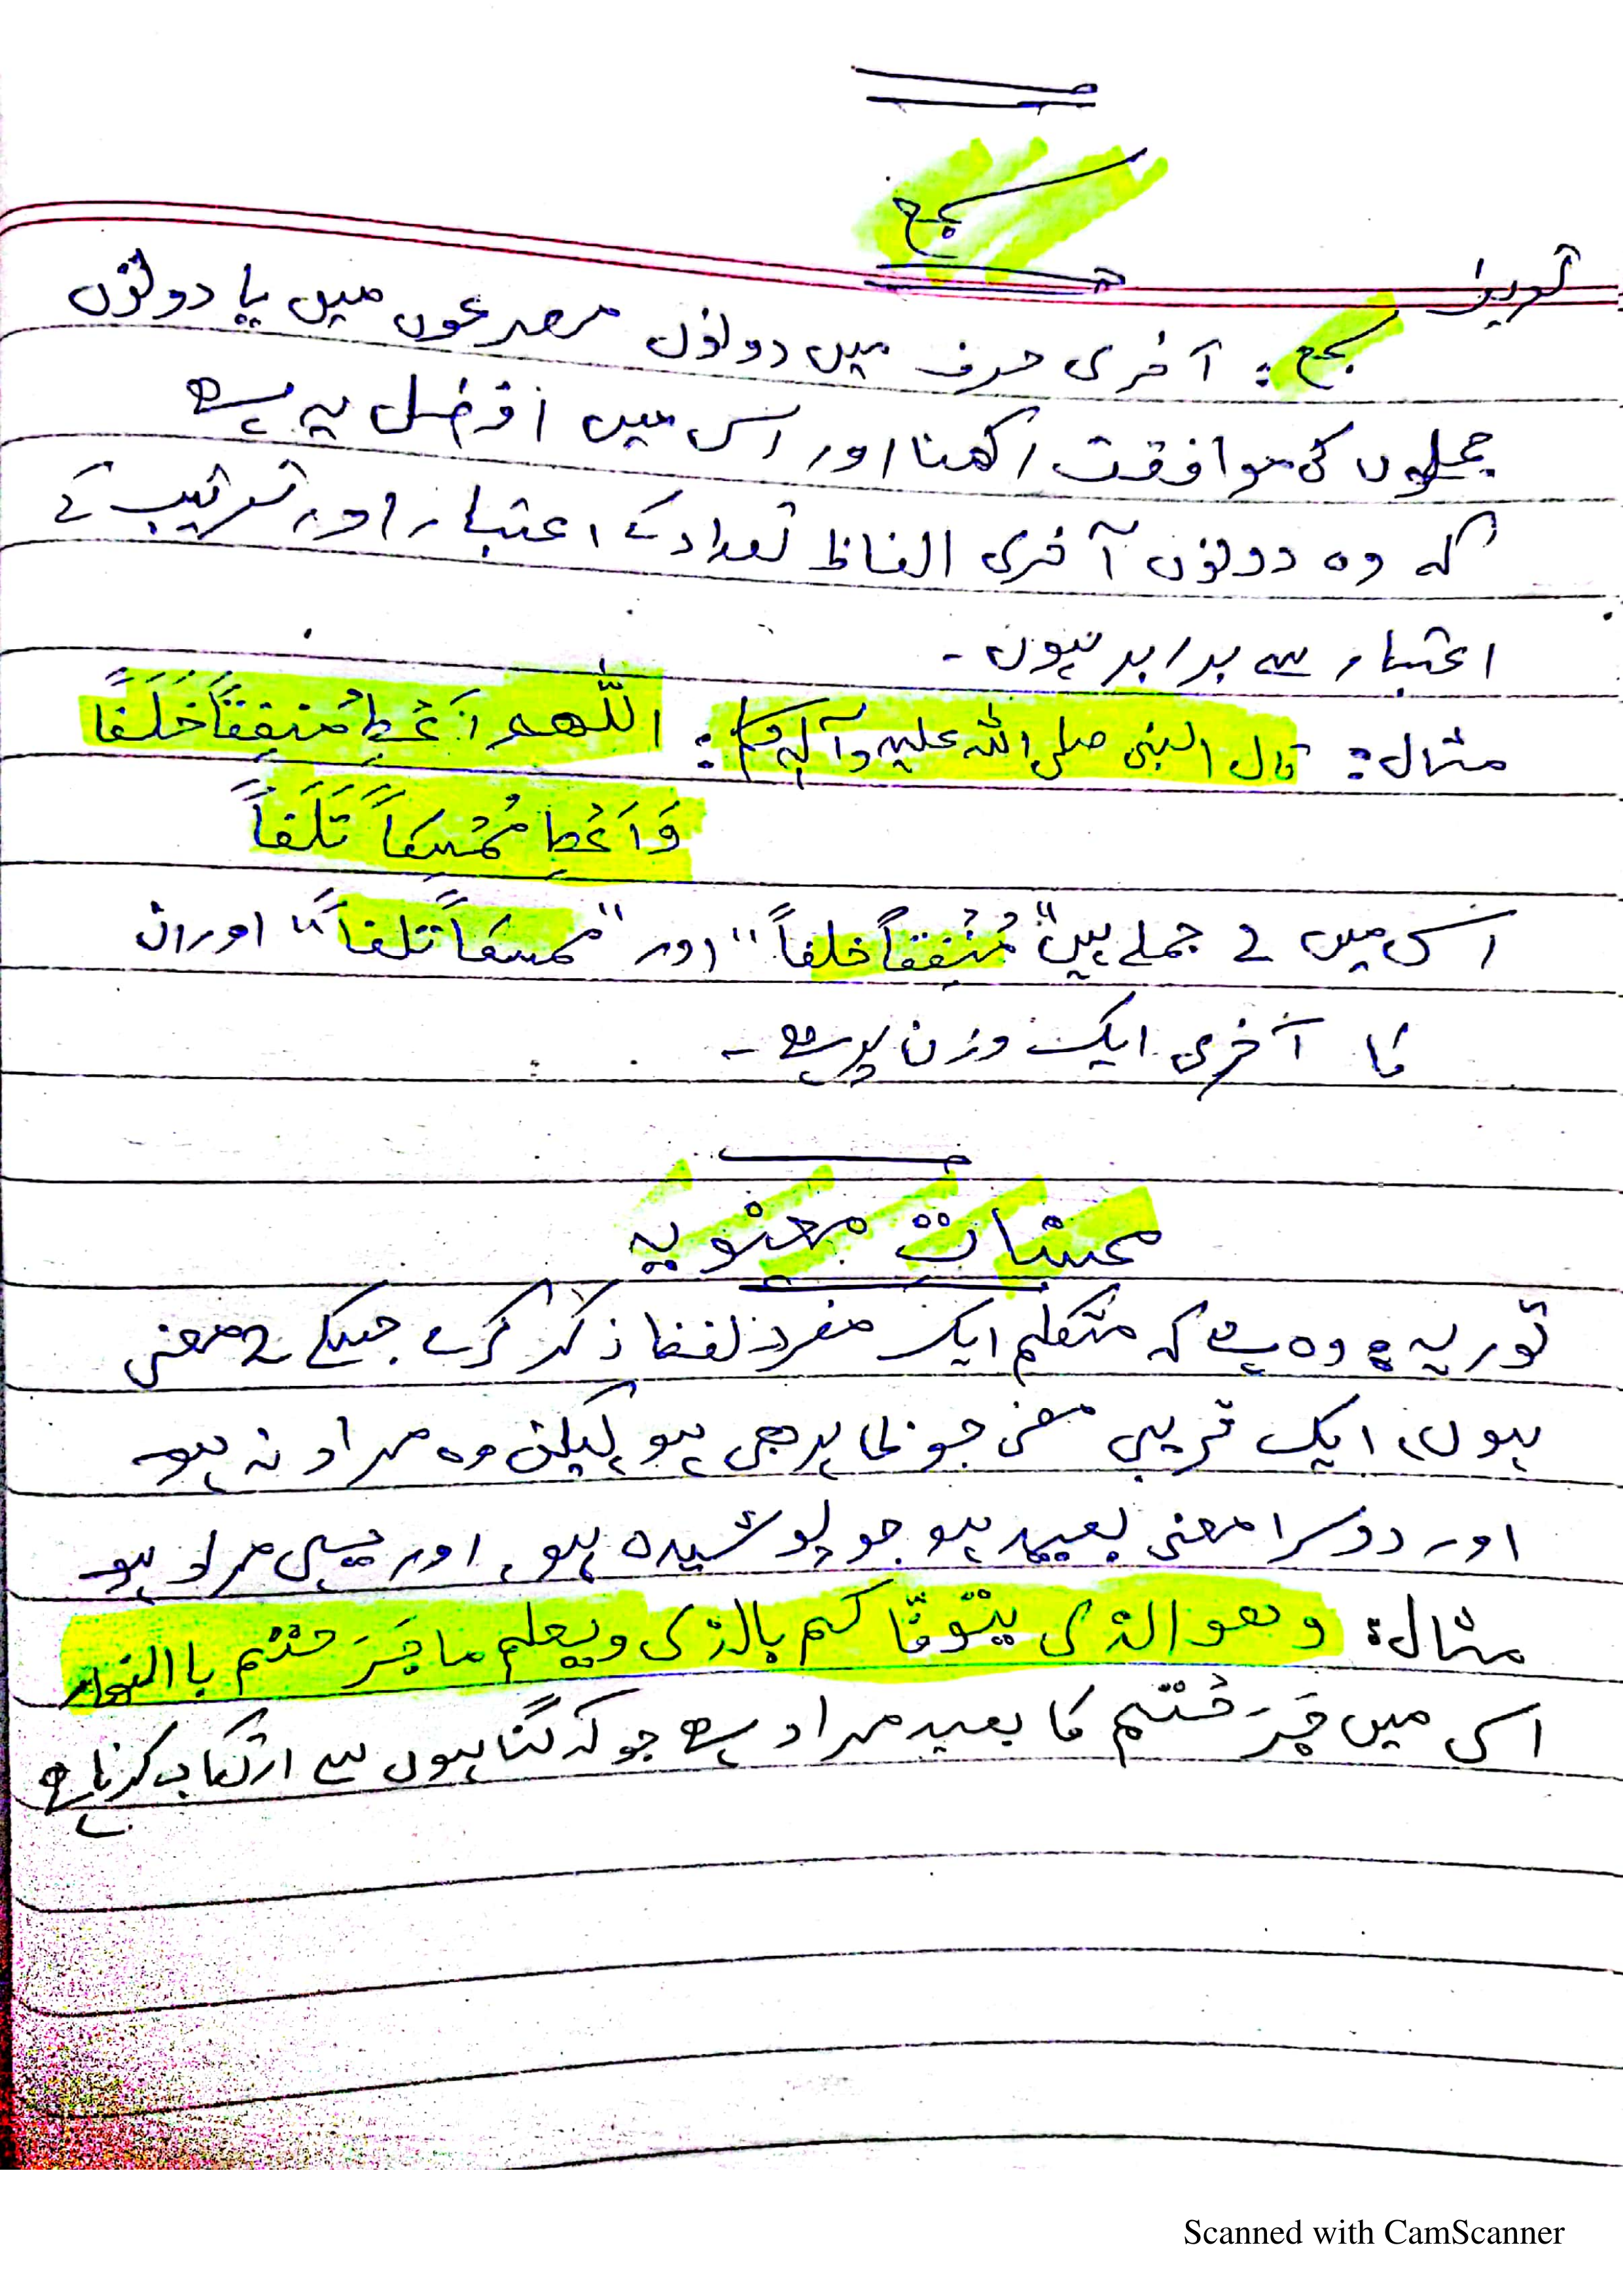 سجع
تعریف
سجع: آخری حرف میں دونوں مصرعوں میں یا دونوں
جملوں کی موافقت رکھنا اور اس میں افضل یہ ہے
کہ وہ دونوں آخری الفاظ تعداد کے اعتبار اور ترتیب کے
اعتبار سے برابر ہوں۔
مثال: قال النبی صلی اللہ علیہ وآلہ وسلم: اللّٰھم اَعْطِ مُنفِقاً خَلَفاً
وَاَعْطِ مُمْسِکاً تَلَفاً
اس میں 2 جملے ہیں "مُنْفِقاً خلفاً" اور "ممسکاً تلفاً" اور ان
کا آخری ایک وزن پر ہے۔
محسناتِ معنویہ
توریہ: وہ ہے کہ متکلم ایک مفرد لفظ ذکر کرے جسکے 2 معنی
ہوں، ایک قریبی معنی جو ظاہر بھی ہو لیکن وہ مراد نہ ہو
اور دوسرا معنی بعید ہو جو پوشیدہ ہو، اور یہی مراد ہو
مثال: وھو الذی یتوفّاکم بالذی ویعلم ما جَرَحْتُم باالنھار
اس میں جَرَحْتُم کا بعید مراد ہے جو کہ گناہوں سے ارتکاب کرنا ہے
Scanned with CamScanner